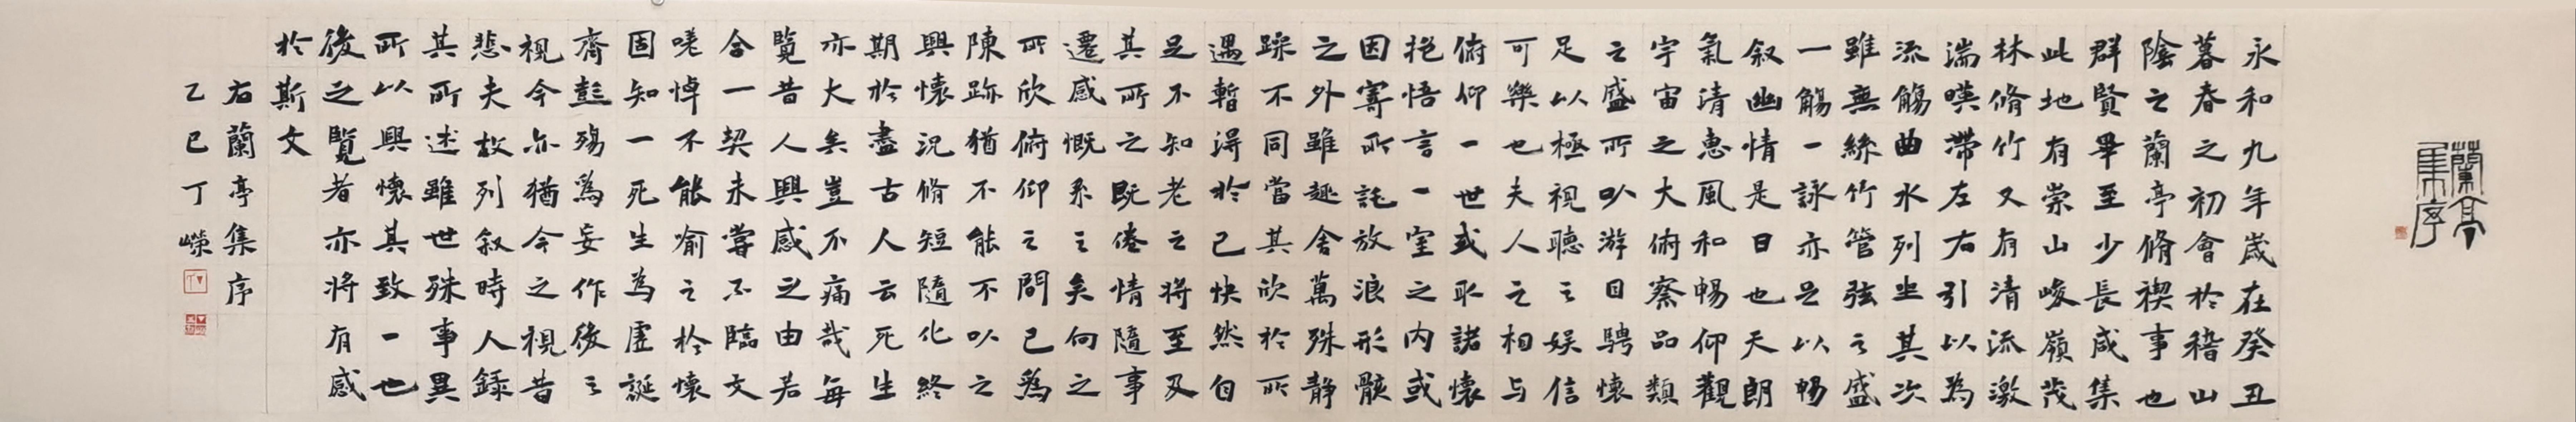 蘭亭
集序
永和九年歲在癸丑
暮春之初會於稽山
陰之蘭亭脩禊事也
群賢畢至少長咸集
此地有崇山峻嶺茂
林脩竹又有清流激
湍暎帶左右引以為
流觴曲水列坐其次
雖無絲竹管弦之盛
一觴一詠亦足以暢
叙幽情是日也天朗
氣清惠風和暢仰觀
宇宙之大俯察品類
之盛所以游目騁懷
足以極視聽之娛信
可樂也夫人之相与
俯仰一世或取諸懷
抱悟言一室之内或
因寄所託放浪形骸
之外雖趣舍萬殊静
躁不同當其欣於所
遇暫得於己快然自
足不知老之將至及
其所之既倦情隨事
遷感慨系之矣向之
所欣俯仰之間已為
陳跡猶不能不以之
興懷況脩短隨化終
期於盡古人云死生
亦大矣豈不痛哉每
覽昔人興感之由若
合一契未嘗不臨文
嗟悼不能喻之於懷
固知一死生為虛誕
齊彭殤為妄作後之
視今亦猶今之視昔
悲夫故列叙時人錄
其所述雖世殊事異
所以興懷其致一也
後之覽者亦將有感
於斯文
右蘭亭集序
乙巳丁嶸